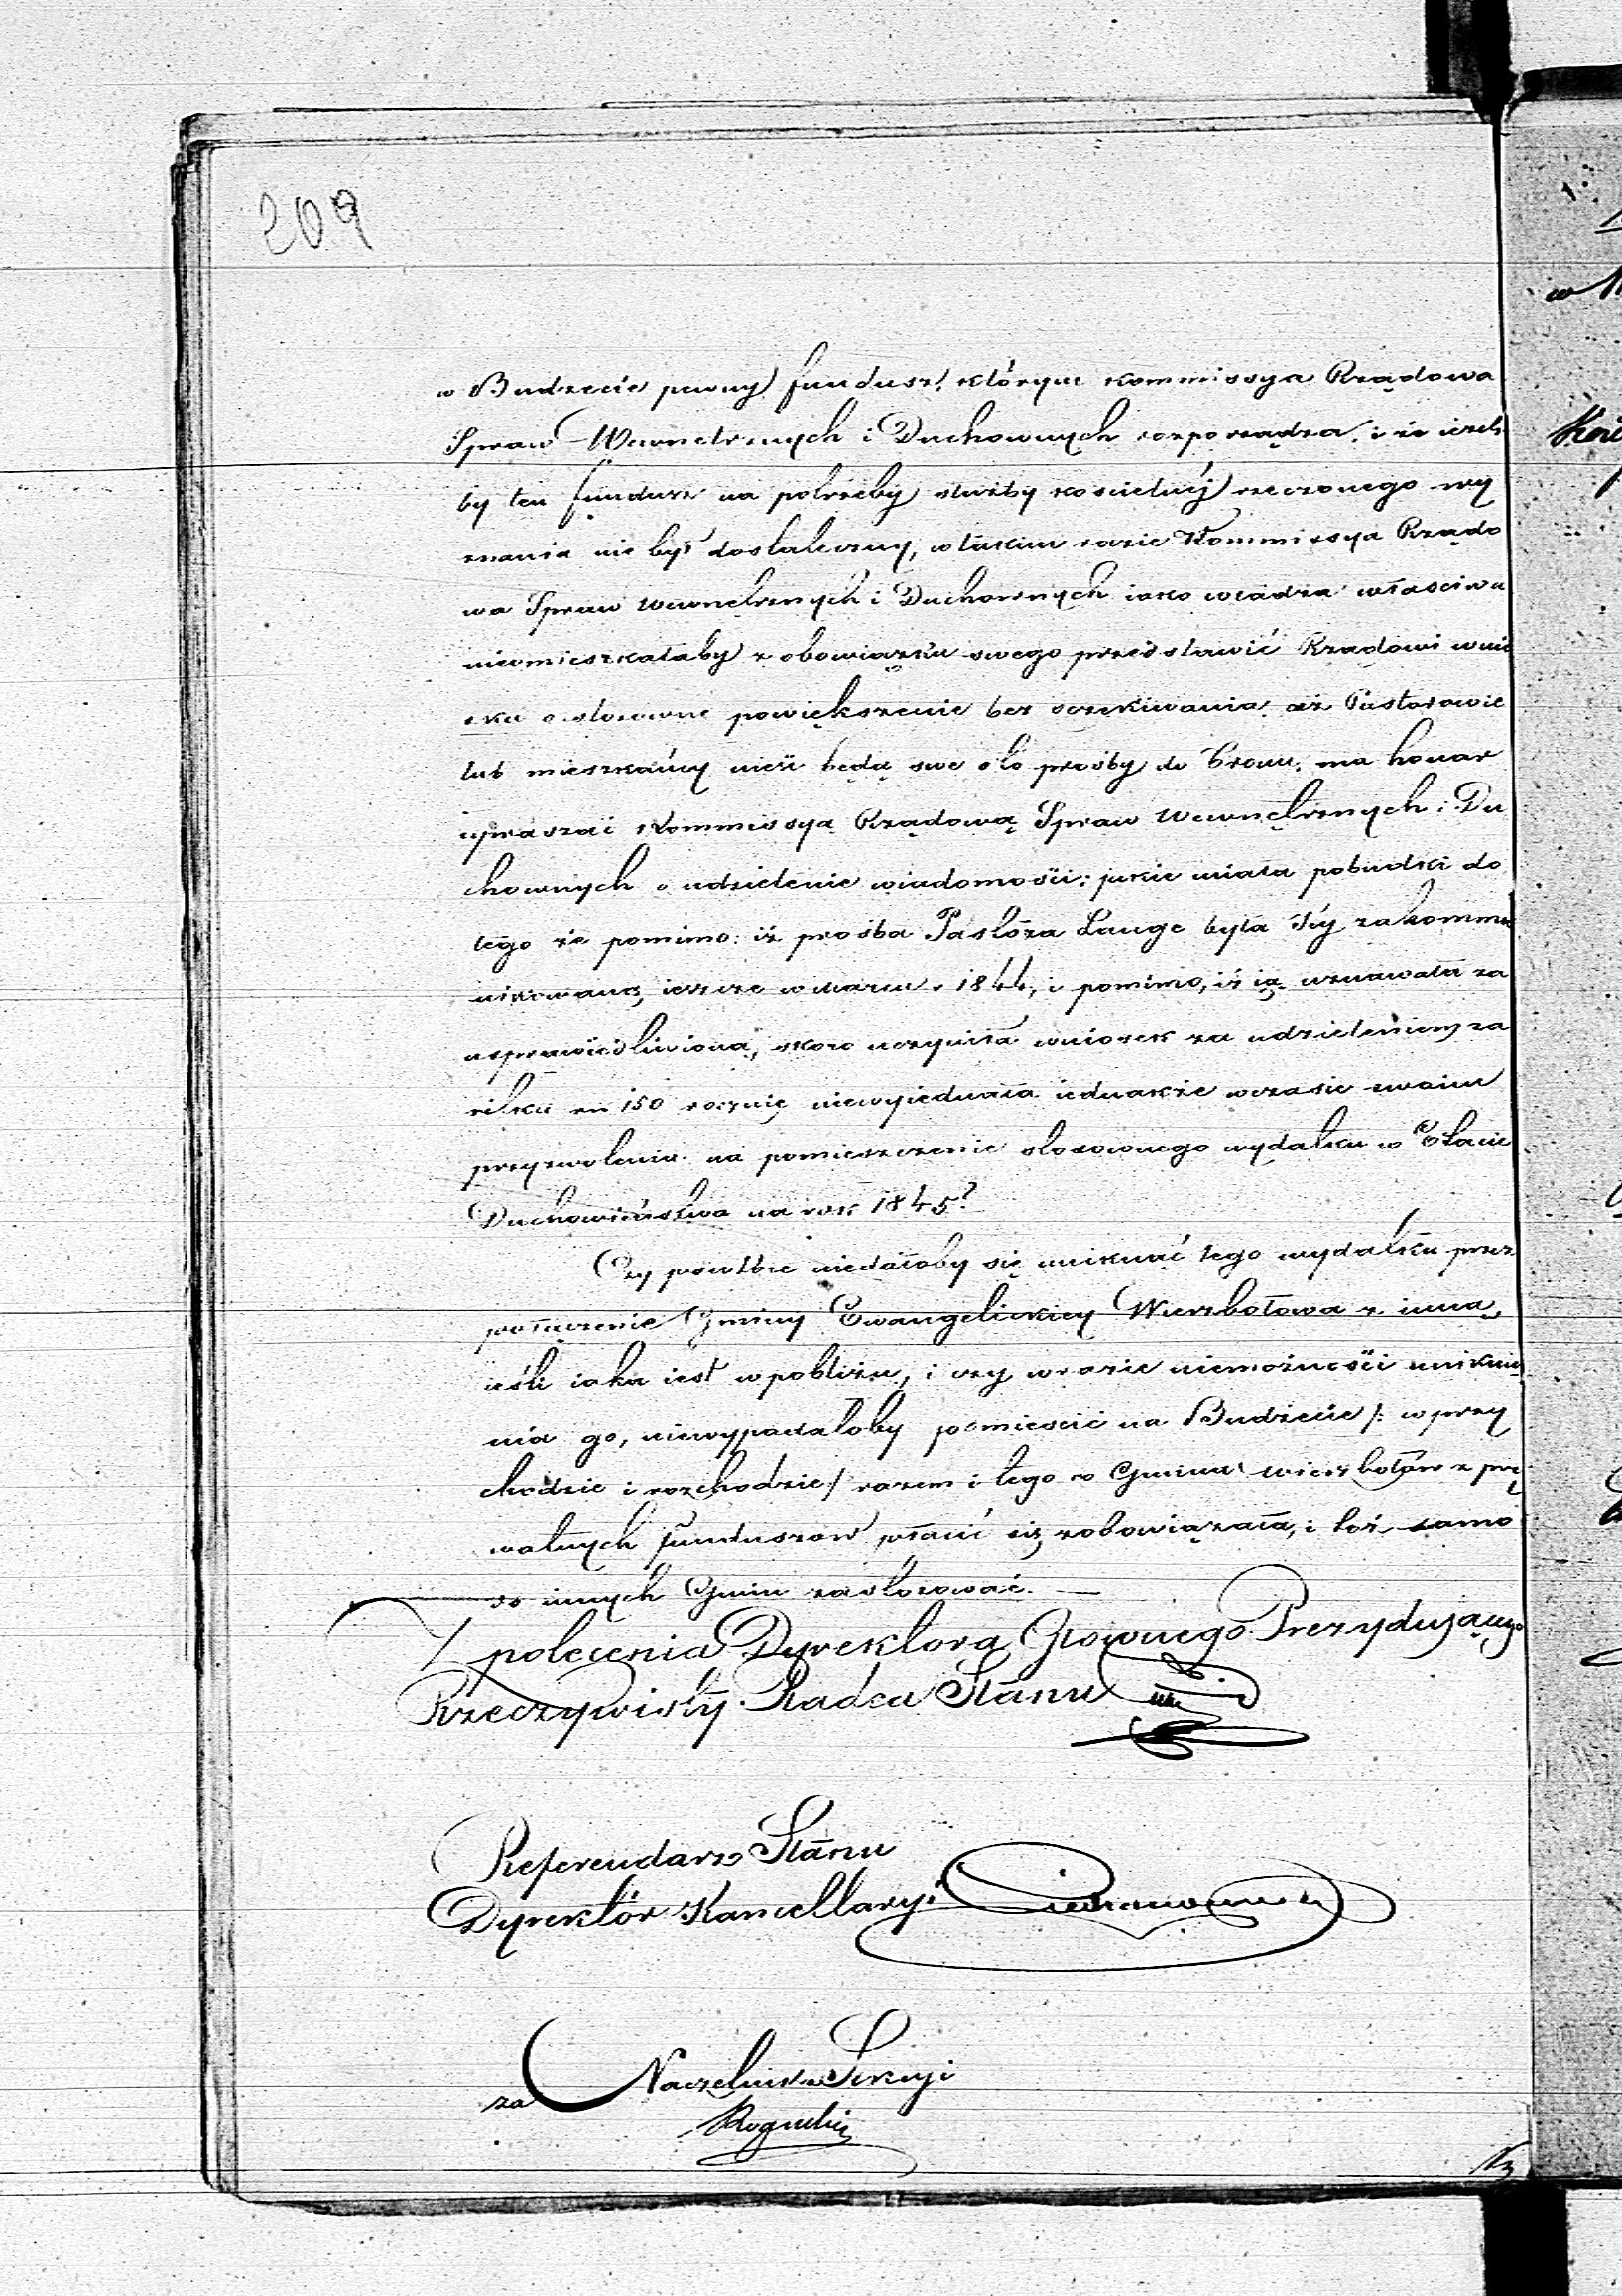 209
w Budżecie pewny fundusz, którym Kommissya Rządowa
Spraw Wewnętrznych i Duchownych rozporządza, i że ieżeli
by ten fundusz na potrzeby służby kościelnéj rzeczonego wy
znania nie był dostateczny, w takim razie Kommissya Rządo
wa Spraw Wewnętrznych i Duchownych iako władza właściwa
nieomieszkałaby z obowiązku swego przedstawić Rządowi wnio
sku o stosowne powiększenie bez oczekiwania aż Pastorowie
lub mieszkańcy nieść będą swe o to prośby do Tronu, ma honor
upraszać Kommissyą Rządową Spraw Wewnętrznych i Du
chownych o udzielenie wiadomości: jakie miała pobudki do
tego że pomimo: iż prośba Pastora Lange była Jéj zakommu
nikowaną, ieszcze w Marcu r. 1844, i pomimo, iż ią uznawała za
usprawiedliwioną, skoro uczyniła wniosek za udzieleniem za
siłku rs 150 rocznie niewyiednała iednakże w czasie swoim
przyzwolenia na pomieszczenie stosownego wydatku w Etacie
Duchowieństwa na rok 1845?
Czy powtóre niedałoby się uniknąć tego wydatku przez
połączenie Gminy Ewangelickiey Wierzbołowa z inną,
ieśli iaka iest w pobliżu, i czy w razie niemożności uniknie
nia go, niewypadałoby pomieścić na Budżecie /: w przy
chodzie i rozchodzie / razem i tego co Gmina Wierzbołów z pry
watnych funduszów płacić się zobowiązała, i toż samo
do innych Gmin zastosować. —
Z polecenia Dyrektora Głównego Prezydującego
Rzeczywisty Radca Stanu
Referendarz Stanu
Dyrektór Kancellaryi
za Naczelnika Sekcyi